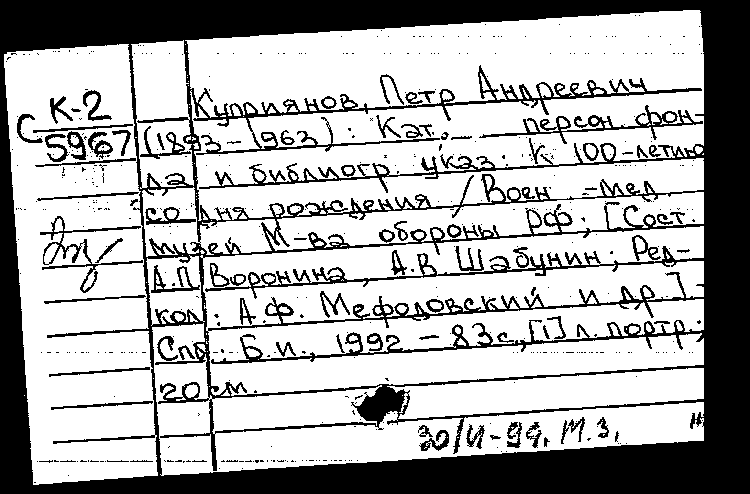 К-2
С 5967
Куприянов, Петр Андреевич
(1893-1963): Кат. персон. фон-
да и библиогр. указ: К 100-летию
со дня рождения / Воен-мед.
музей М-ва обороны РФ; [Сост.
А.П. Воронина, А.В. Шабунин; Ред-
кол: А.Ф. Мефодовский и др.].-
Спб.: Б.и., 1992 - 83с.,[1]л. портр;
20 см.
М.З.